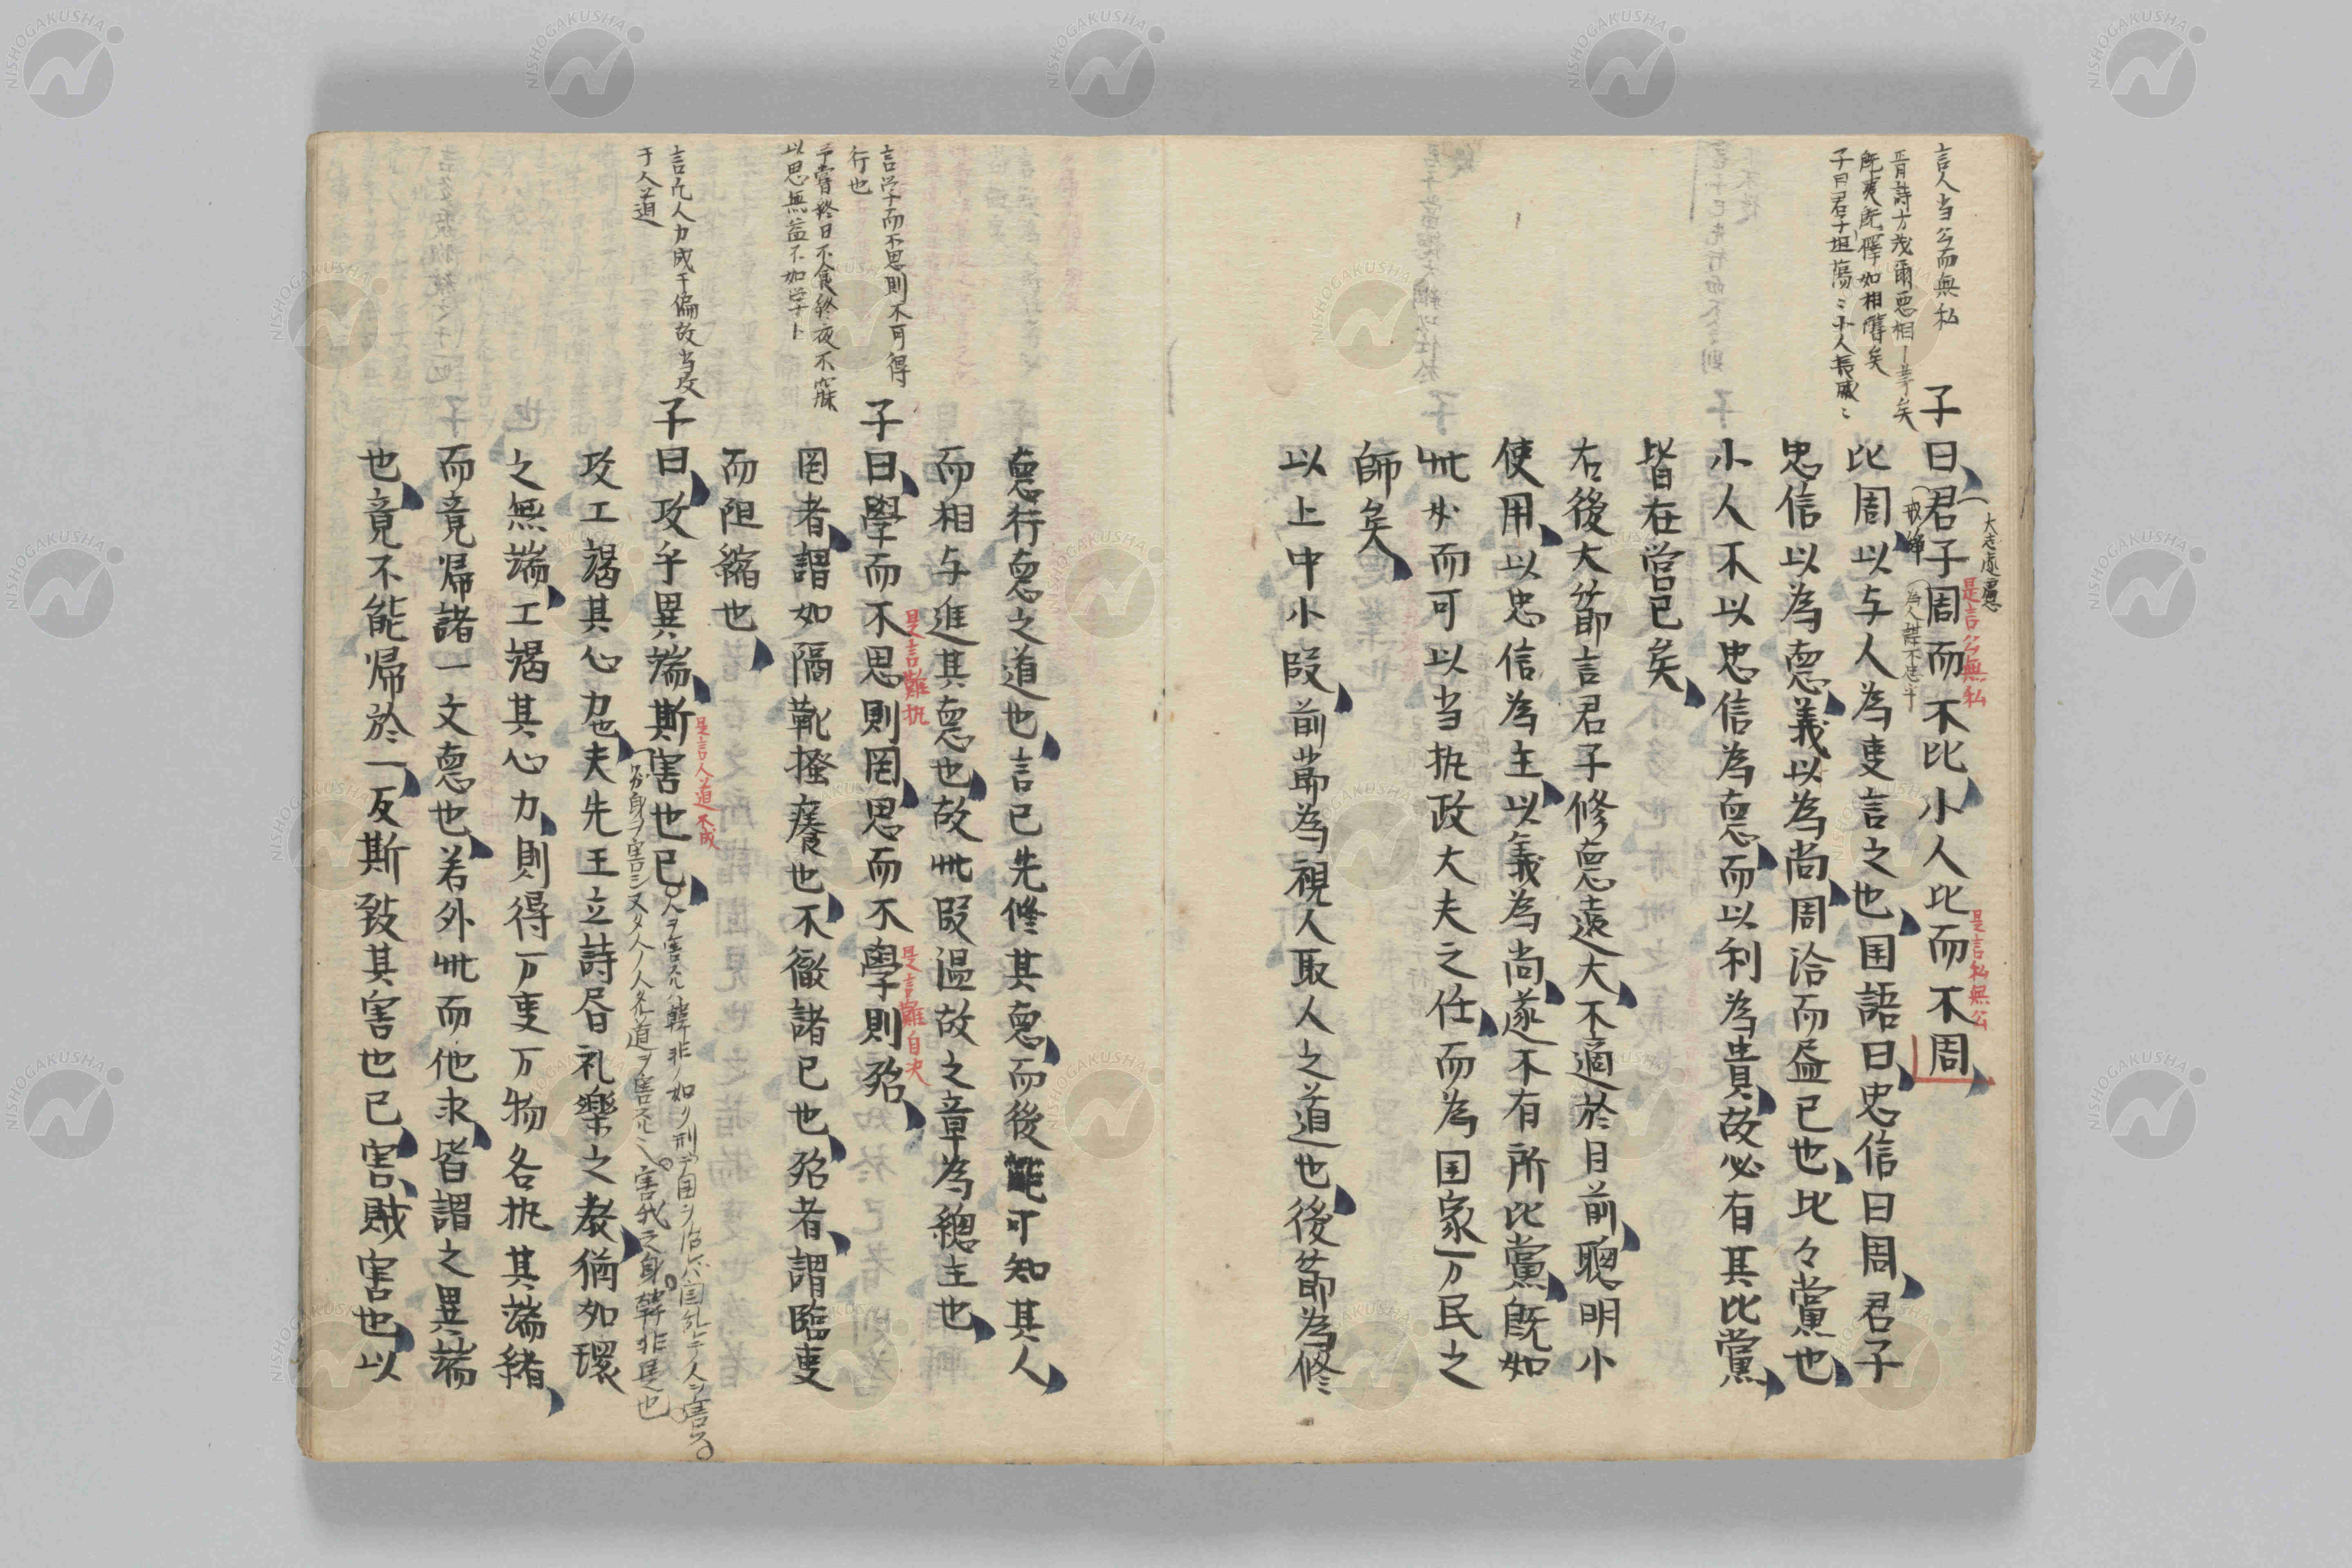 言人当公而無私
子曰君子坦蕩〻小人長戚〻
子曰、君子周而不比、小人比而不周、
大志遠慮
是言公無私
是言私無公
比周、以与人為㕝言之也、国語曰、忠信曰周、君子
忠信以為悳、義以為尚、周洽而益已也、比々黨也、
小人不以忠信為悳、而以利為貴、故必有其比黨、
皆在営已矣、
右後大莭言君子修悳遠大、不適於目前、聰明小
使用、以忠信為主、以義為尚、遂不有所比黨、既如
此必而可以当执政大夫之任、而為国家万民之
師矣、
以上中小叚、前莭為視人取人之道也、後莭為修
悳行悳之道也、言已先修其悳、而後能可知其人、
而相与進其悳也、故此叚温故之章為總主也、
言学而不思則不可得
行也
予嘗終日不食終夜不寐
以思無益不如学ト
子曰、學而不思則罔、思而不學則殆、
是言難执
是言難自决
罔者、謂如隔靴搔癢也、不徹諸已也、殆者、謂臨㕝
而阻縮也、
言凢人力成于偏故当攻
于人道
子曰、攻乎異端、斯害也已、
是言人道不成
攻工竭其心力也、夫先王立詩昏礼樂之教、猶如環
之無端、工竭其心力、則得万㕝万物各执其端緒、
而竟帰諸一文悳也、若外此而他求、皆謂之異端
也、竟不能帰於一、反斯致其害也已、害、賊害也、以
NISHOGAKUSHA